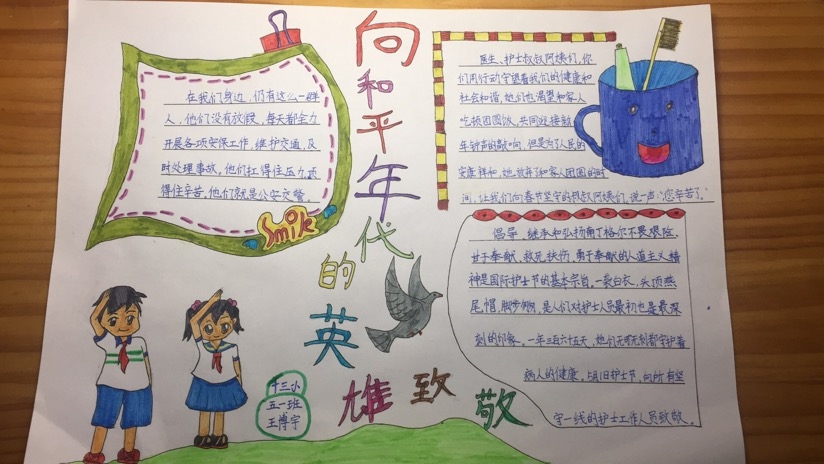 向和平年代的英雄致敬
在我们身边,仍有这么一群
人,他们没有放假,每天都全力
开展各项安保工作,维护交通,及
时处理事故,他们扛得住压力,顶
得住辛苦,他们就是公安交警。
Smile
医生、护士叔叔阿姨们,你
们用行动守望着我们的健康和
社会和谐,她们也渴望和家人
吃顿团圆饭,共同迎接新
年钟声的敲响,但是为了人民的
安康祥和,她放弃了和家人团圆的时
间,让我们向春节坚守的叔叔阿姨们,说一声“您辛苦了”
倡导、继承和弘扬南丁格尔不畏艰险、
甘于奉献、救死扶伤、勇于奉献的人道主义精
神是国际护士节的基本宗旨。一袭白衣、头顶燕
尾帽、脚步,是人们对护士人员最初也是最深
刻的印象。一年三百六十五天,她们无时无刻都守护着
病人的健康,护士节,向所有坚
守一线的护士工作人员致敬。
十三小
五一班
王博宇